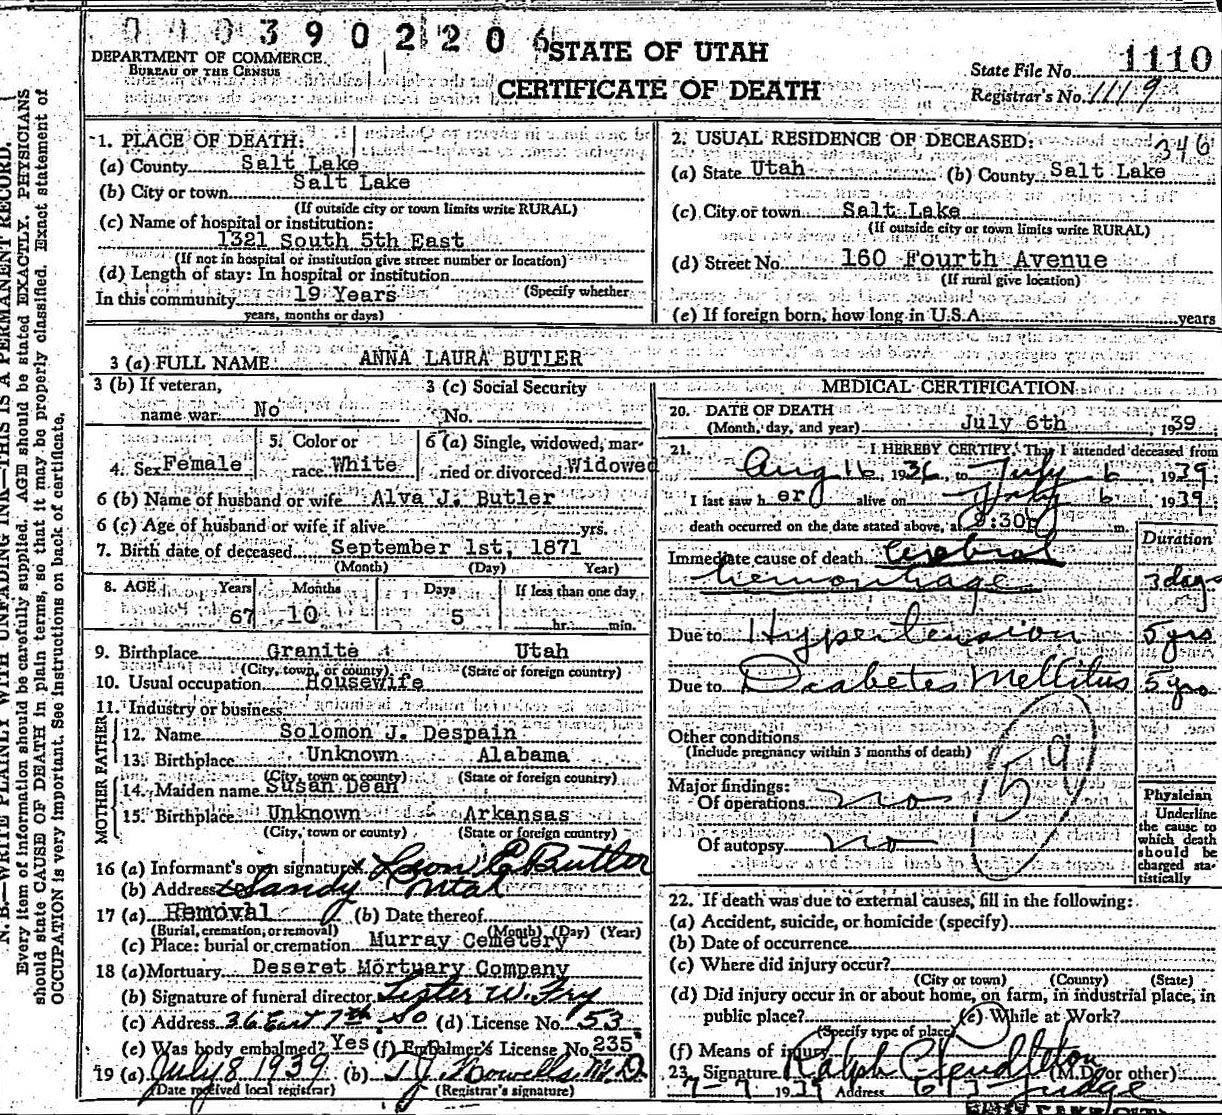 0403902206
STATE OF UTAH
CERTIFICATE OF DEATH
DEPARTMENT OF COMMERCE
BUREAU OF THE CENSUS
State File No. 1110
Registrar's No. 1119
N. B.—WRITE PLAINLY WITH UNFADING INK—THIS IS A PERMANENT RECORD.
Every item of information should be carefully supplied. AGE should be stated EXACTLY. PHYSICIANS
should state CAUSE OF DEATH in plain terms, so that it may be properly classified. Exact statement of
OCCUPATION is very important. See instructions on back of certificate.
1. PLACE OF DEATH:
(a) County Salt Lake
(b) City or town Salt Lake
(If outside city or town limits write RURAL)
(c) Name of hospital or institution:
1321 South 5th East
(If not in hospital or institution give street number or location)
(d) Length of stay: In hospital or institution
In this community 19 Years (Specify whether
years, months or days)
2. USUAL RESIDENCE OF DECEASED: 346
(a) State Utah (b) County Salt Lake
(c) City or town Salt Lake
(If outside city or town limits write RURAL)
(d) Street No. 160 Fourth Avenue
(If rural give location)
(e) If foreign born, how long in U.S.A. years
3 (a) FULL NAME ANNA LAURA BUTLER
3 (b) If veteran, 3 (c) Social Security
name war No No.
4. Sex Female 5. Color or race White 6 (a) Single, widowed, mar-
ried or divorced Widowed
6 (b) Name of husband or wife Alva J. Butler
6 (c) Age of husband or wife if alive yrs.
7. Birth date of deceased September 1st, 1871
(Month) (Day) Year)
8. AGE Years Months Days If less than one day
67 10 5 hr. min.
9. Birthplace Granite Utah
(City, town, or county) (State or foreign country)
10. Usual occupation Housewife
11. Industry or business
FATHER
12. Name Solomon J. Despain
13. Birthplace Unknown Alabama
(City, town or county) (State or foreign country)
MOTHER
14. Maiden name Susan Dean
15. Birthplace Unknown Arkansas
(City, town or county) (State or foreign country)
16 (a) Informant's own signature x Leon E Butler
(b) Address Sandy Utah
17 (a) Removal (b) Date thereof
(Burial, cremation, or removal) (Month) (Day) (Year)
(c) Place: burial or cremation Murray Cemetery
18 (a) Mortuary Deseret Mortuary Company
(b) Signature of funeral director Lester W. Fry
(c) Address 36 East 7th So (d) License No. 53
(e) Was body embalmed? Yes (f) Embalmer's License No. 235
19 (a) July 8 1939 (b) T J Howells M. D
(Date received local registrar) (Registrar's signature)
MEDICAL CERTIFICATION
20. DATE OF DEATH
(Month, day, and year) July 6th 1939
21. I HEREBY CERTIFY, That I attended deceased from
Aug 16, 1936, to July 6, 1939
I last saw her alive on July 6 1939
death occurred on the date stated above, at 9:30p m.
Duration
Immediate cause of death Cerebral
hemorrhage 3 days
Due to Hypertension 5 yrs
Due to Diabetes Mellitus 5 yrs
Other conditions
(Include pregnancy within 3 months of death)
59
Major findings:
Of operations no
Of autopsy no
Physician
Underline
the cause to
which death
should be
charged sta-
tistically
22. If death was due to external causes, fill in the following:
(a) Accident, suicide, or homicide (specify)
(b) Date of occurrence
(c) Where did injury occur?
(City or town) (County) (State)
(d) Did injury occur in or about home, on farm, in industrial place, in
public place? (e) While at Work?
(Specify type of place)
(f) Means of injury
23. Signature Ralph C Pendleton (M.D. or other)
7-7 1939 Address 613 Judge